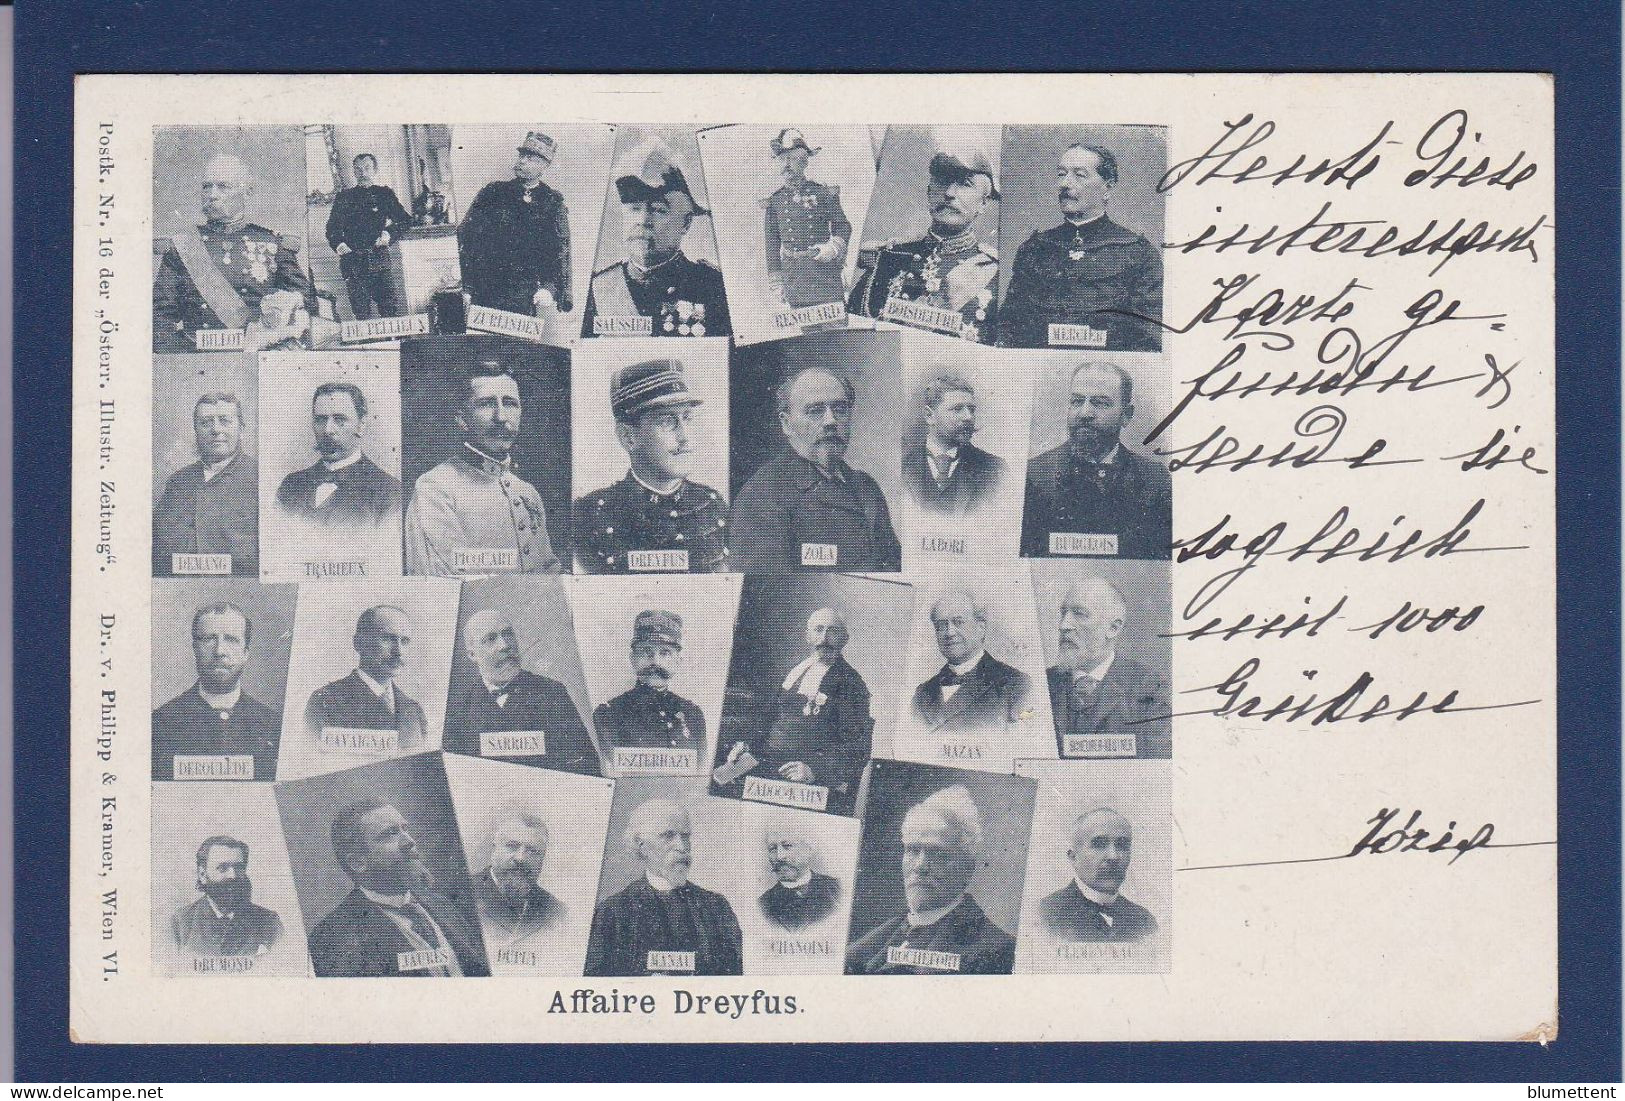 Postk. Nr. 16 der „Österr. Illustr. Zeitung“. Dr. v. Philipp & Kramer, Wien VI.
BILLOT
DE PELLIEUX
ZURLINDEN
SAUSSIER
RENOUARD
BOISDEFFRE
MERCIER
DEMANG
TRARIEUX
PICQUART
DREYFUS
ZOLA
LABORI
BURGEOIS
DEROULÈDE
CAVAIGNAC
SARRIEN
ESZTERHAZY
ZADOC-KAHN
MAZAN
DRUMOND
JAURÉS
DUPUY
MANAU
CHANOINE
ROCHEFORT
Affaire Dreyfus.
Heute diese
interessant
Karte ge-
funden &
sende sie
sogleich
mit 1000
Grüßen
blumettent